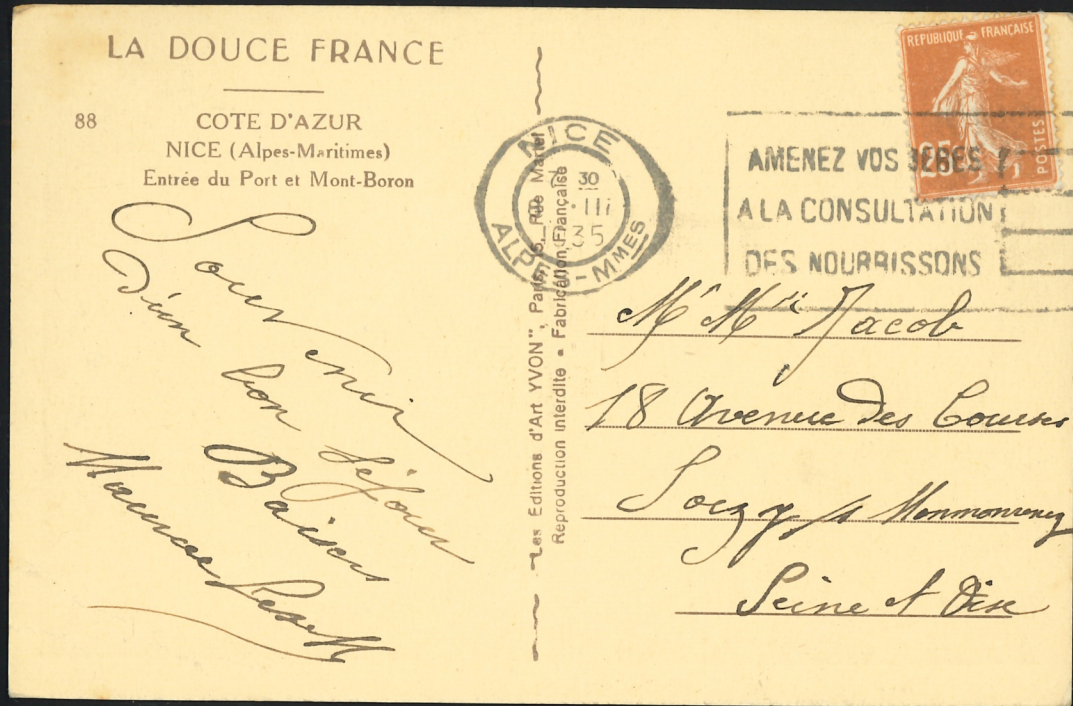 LA DOUCE FRANCE
88
COTE D'AZUR
NICE (Alpes-Maritimes)
Entrée du Port et Mont-Boron
Souvenir
d'un
bon séjour
Baisers
Maurice
"Les Editions d'Art YVON", Paris, 15, Rue Martel
Reproduction interdite • Fabrication Française
NICE
30
III
35
ALPES-MMES
AMENEZ VOS BEBES
A LA CONSULTATION
DES NOURRISSONS
REPUBLIQUE FRANÇAISE
POSTES
25c
Mr Mme Jacob
18 Avenue des Courses
Soizy /s Monmorency
Seine et Oise